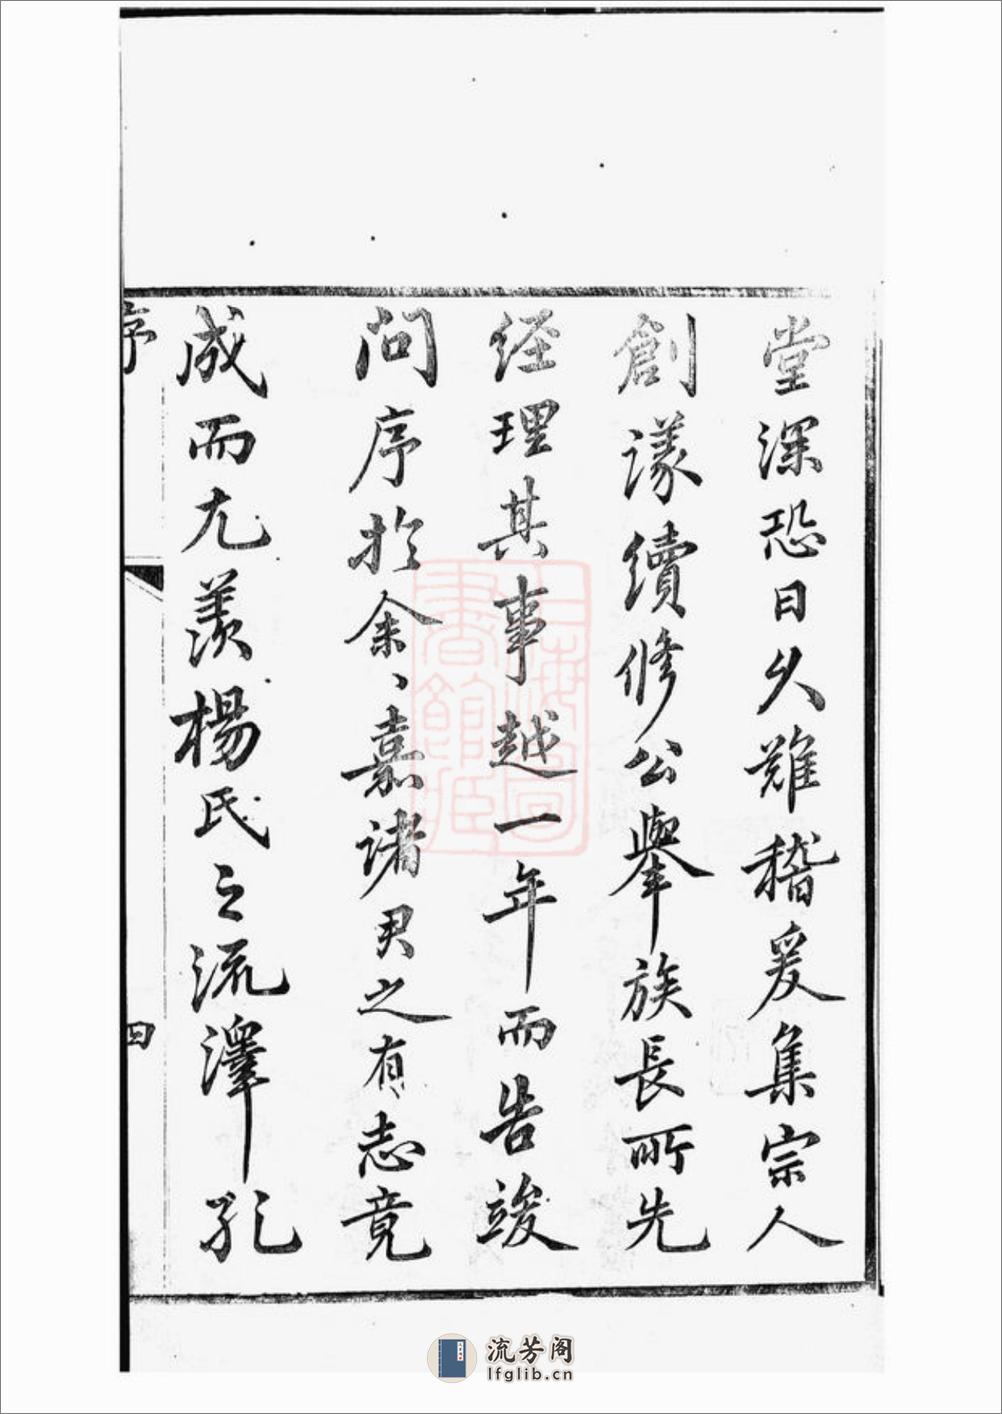 堂深恐日久難稽爰集宗人
創議續修公舉族長所先
経理其事越一年而告竣
问序於余、嘉諸君之有志竟
成而尤羨楊氏之流澤孔
序
四
上海圖書館藏
流芳阁
lfglib.cn